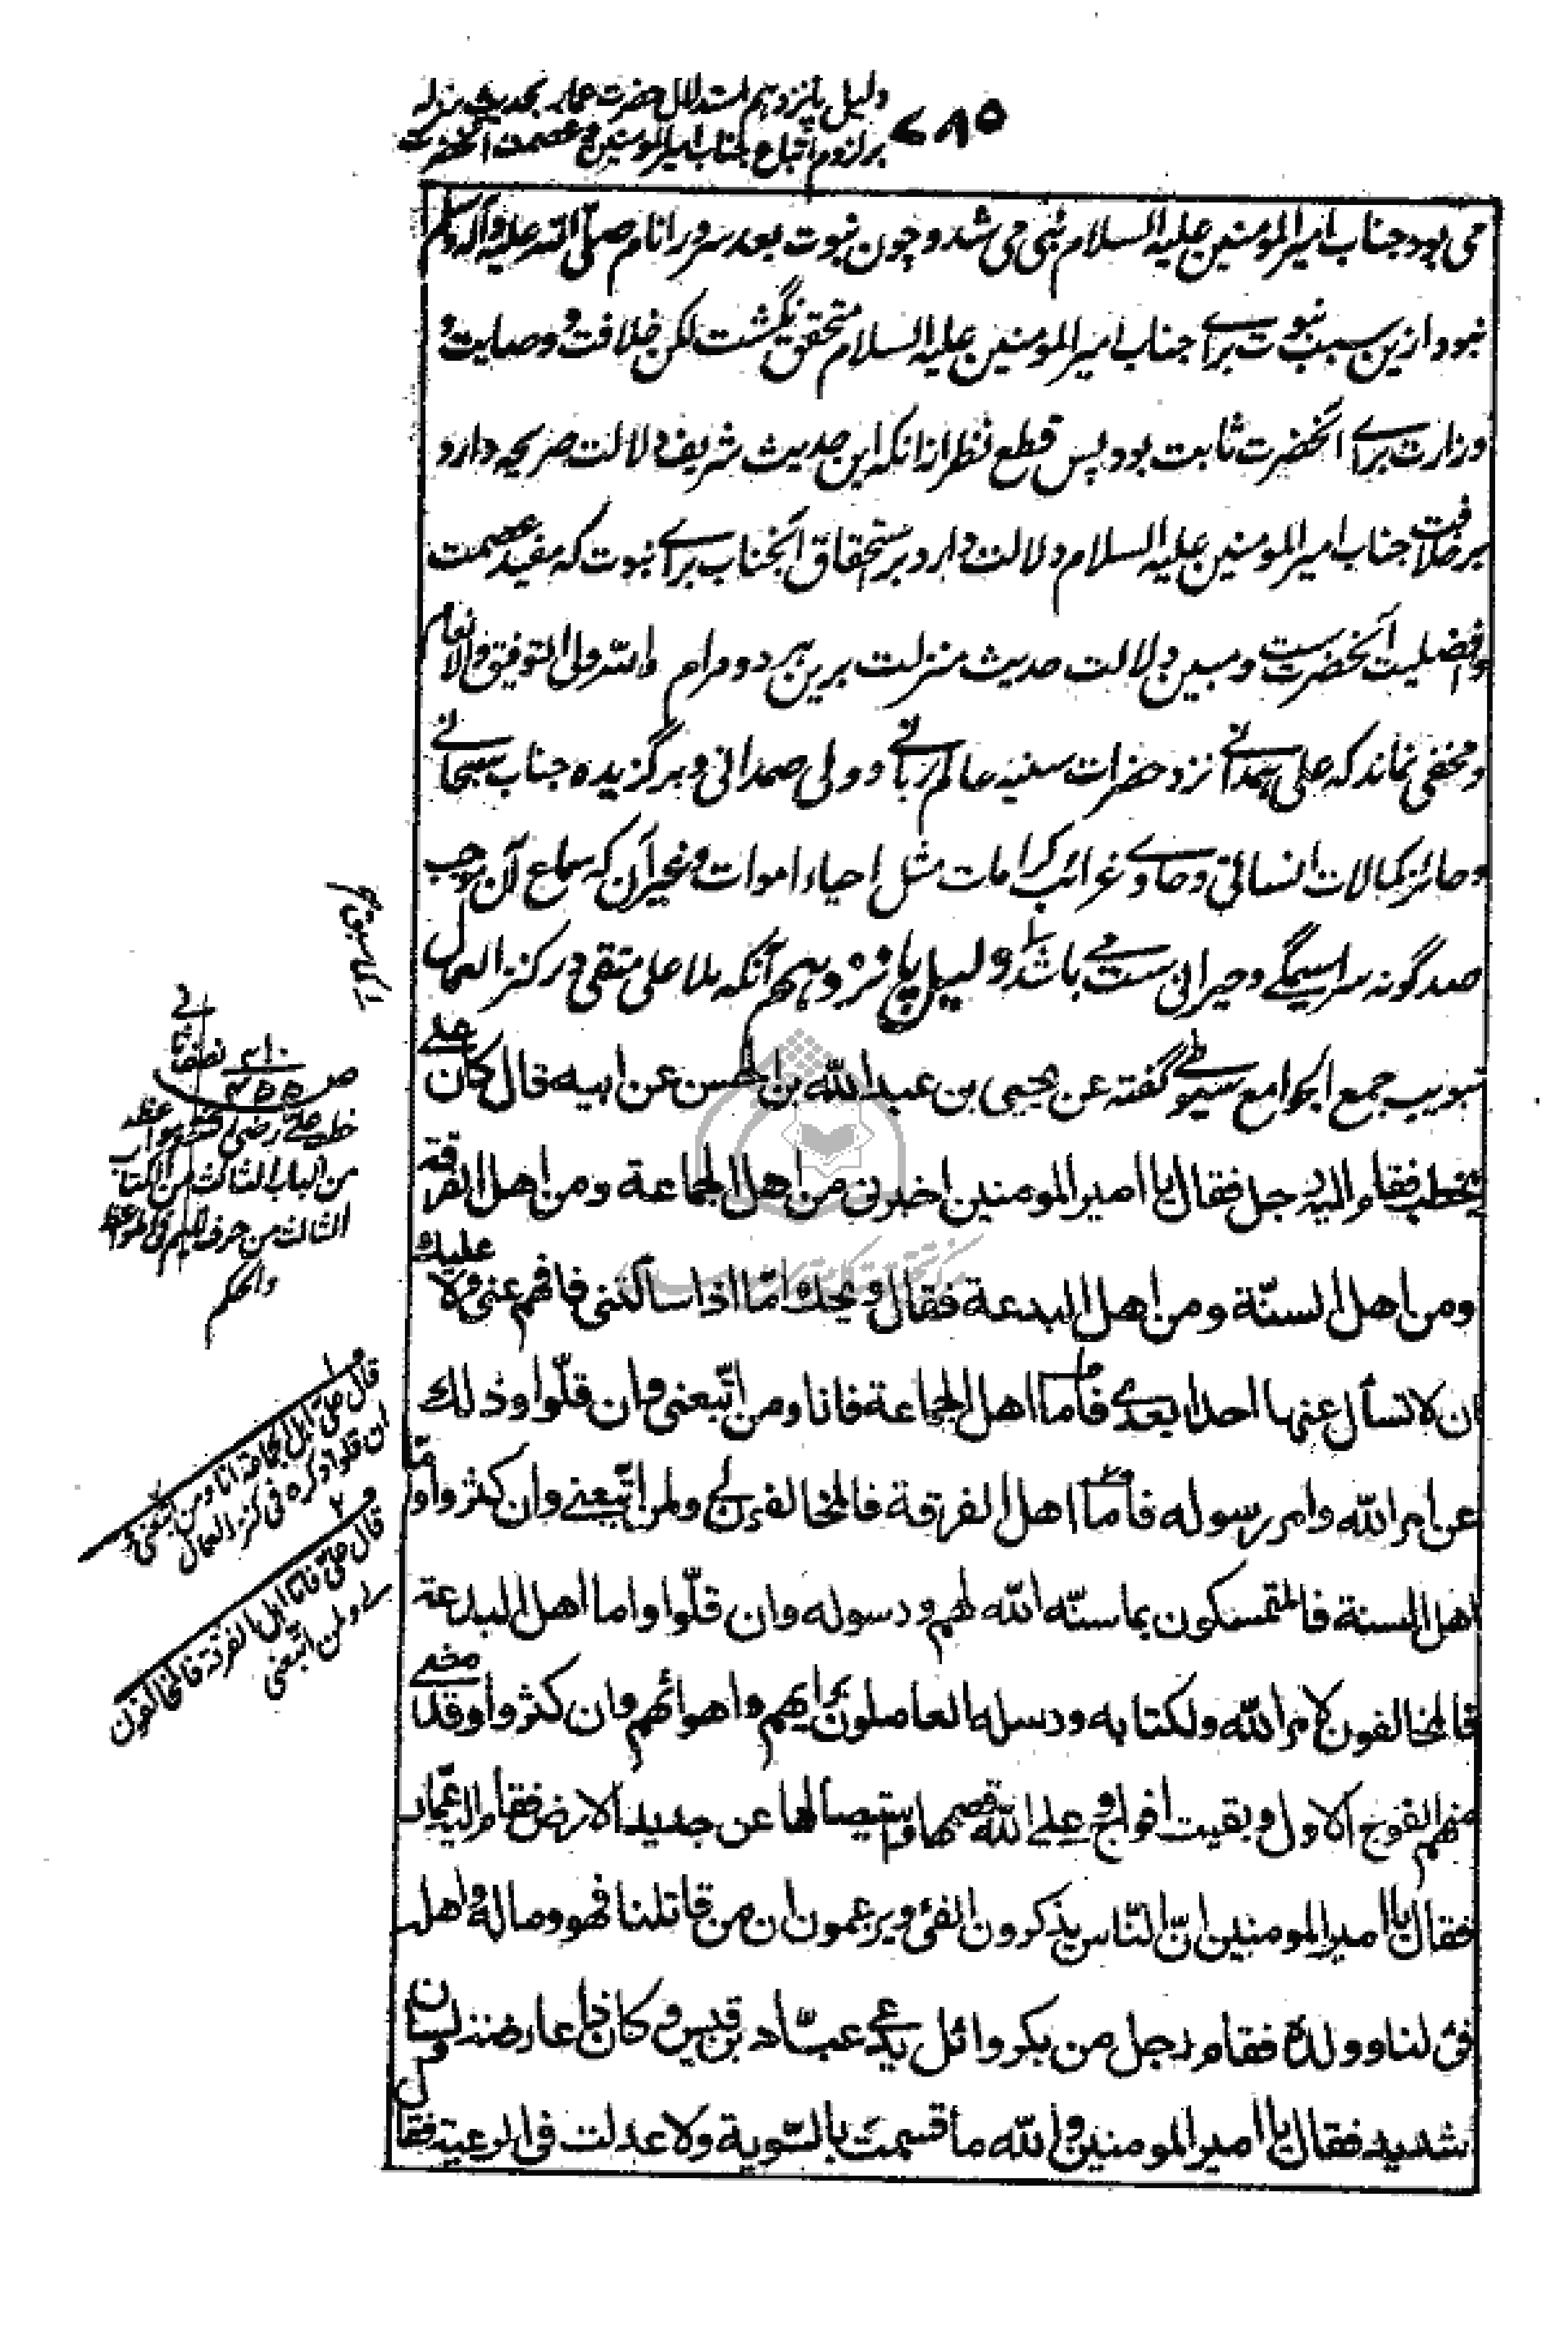 دلیل پانزدهم استدلال حضرت عمار بحدیث منزلت
بر لزوم اتباع جناب امیرالمومنین و عصمت آنحضرت
۶۸۵
می بود جناب امیرالمومنین علیه السلام نبی می شد و چون نبوت بعد سرور انام صلّی الله علیه وآله وسلم
نبود ازین سبب نبوت برای جناب امیرالمومنین علیه السلام متحقق نگشت لکن خلافت و وصایت و
وزارت برای آنحضرت ثابت بود پس قطع نظر ازانکه این حدیث شریف دلالت صریحه دارد
بر خلافت جناب امیرالمومنین علیه السلام دلالت دارد بر استحقاق آنجناب برای نبوت که مفید عصمت
و افضلیت آنحضرتست و مبین دلالت حدیث منزلت برین هر دو مرام والله ولی التوفیق والانعام
و مخفی نماند که علی همدانی نزد حضرات سنیه عالم ربانی و ولی صمدانی و برگزیده جناب سبحانی
و حائز کمالات انسانی و حاوی غرائب کرامات مثل احیاء اموات و غیر آن که سماع آن موجب
صد گونه سراسیمگی و حیرانی ست می باشد دلیل پانزدهم آنکه ملا علی متقی در کنز العمال
تبویب جمع الجوامع سیوطی گفته عن یحیی بن عبد الله بن الحسن عن ابیه قال کان علی
یخطب فقام الیه رجل فقال یا امیر المومنین اخبرنی من اهل الجماعة ومن اهل الفرقة
ومن اهل السنّة ومن اهل البدعة فقال ویحک امّا اذا سألتنی فافهم عنی ولا علیک
ان لا تسأل عنها احدا بعدی فاما اهل الجماعة فانا ومن اتّبعنی وان قلّوا وذلک
عن امر الله وامر رسوله فاما اهل الفرقة فالمخالفون لی ولمن اتّبعنی وان کثروا وامّا
اهل السنة فالمتمسکون بما سنّه الله لهم ورسوله وان قلّوا واما اهل البدعة
فالمخالفون لامر الله ولکتابه ورسله العاملون برایهم واهوائهم وان کثروا وقد مضی
منهم الفوج الاول وبقیت افواج وعلی الله قصمها واستیصالها عن جدید الارض فقام الیه عمّار
فقال یا امیر المومنین انّ النّاس یذکرون الفئ ویزعمون ان من قاتلنا فهو وماله واهله
فئ لنا وولده فقام رجل من بکر وائل یدعی عبّاد بن قیس وکان ذا عارضة ولسان
شدید فقال یا امیر المومنین والله ما قسمت بالسّویة ولا عدلت فی الرعیة فقال
خطب علی رضی الله عنه ومواعظه
من الباب الثالث من الکتاب
الثالث من حرف المیم فی المواعظ
والحکم
قال علیّ اهل الجماعة انا ومن اتبعنی و
ان قلوا ذکره فی کنز العمال
قال علیّ فاما اهل الفرقة فالمخالفون
لی ولمن اتبعنی